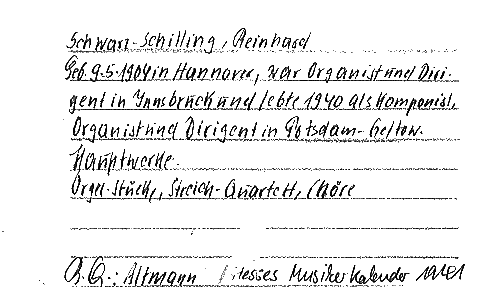 Schwarz-Schilling, Reinhard
Geb. 9.5.1904 in Hannover, war Organist und Diri-
gent in Innsbruck und lebte 1940 als Komponist,
Organist und Dirigent in Potsdam-Geltow.
Hauptwerke.
Orgel-Stücke, Streich-Quartett, Chöre
Altmann Hesses Musiker Kalender 1941